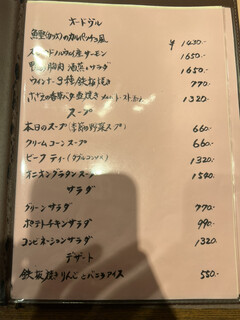 オードブル
鮮魚のカルパッチョ風 ¥1430.-
スモークノルウェイ産サーモン 1650.-
胸肉 酒蒸しサラダ 1650.-
ウインナー3種鉄板焼き 770.-
香草バター焼き 1320.-
スープ
本日のスープ(季節の野菜スープ) 660.-
クリームコーンスープ 660.-
ビーフティ(ダブルコンソメ) 1320.-
オニオングラタンスープ 1540.-
サラダ
グリーンサラダ 770.-
ポテトチキンサラダ 990.-
コンビネーションサラダ 1320.-
デザート
鉄板焼きりんごとバニラアイス 550.-